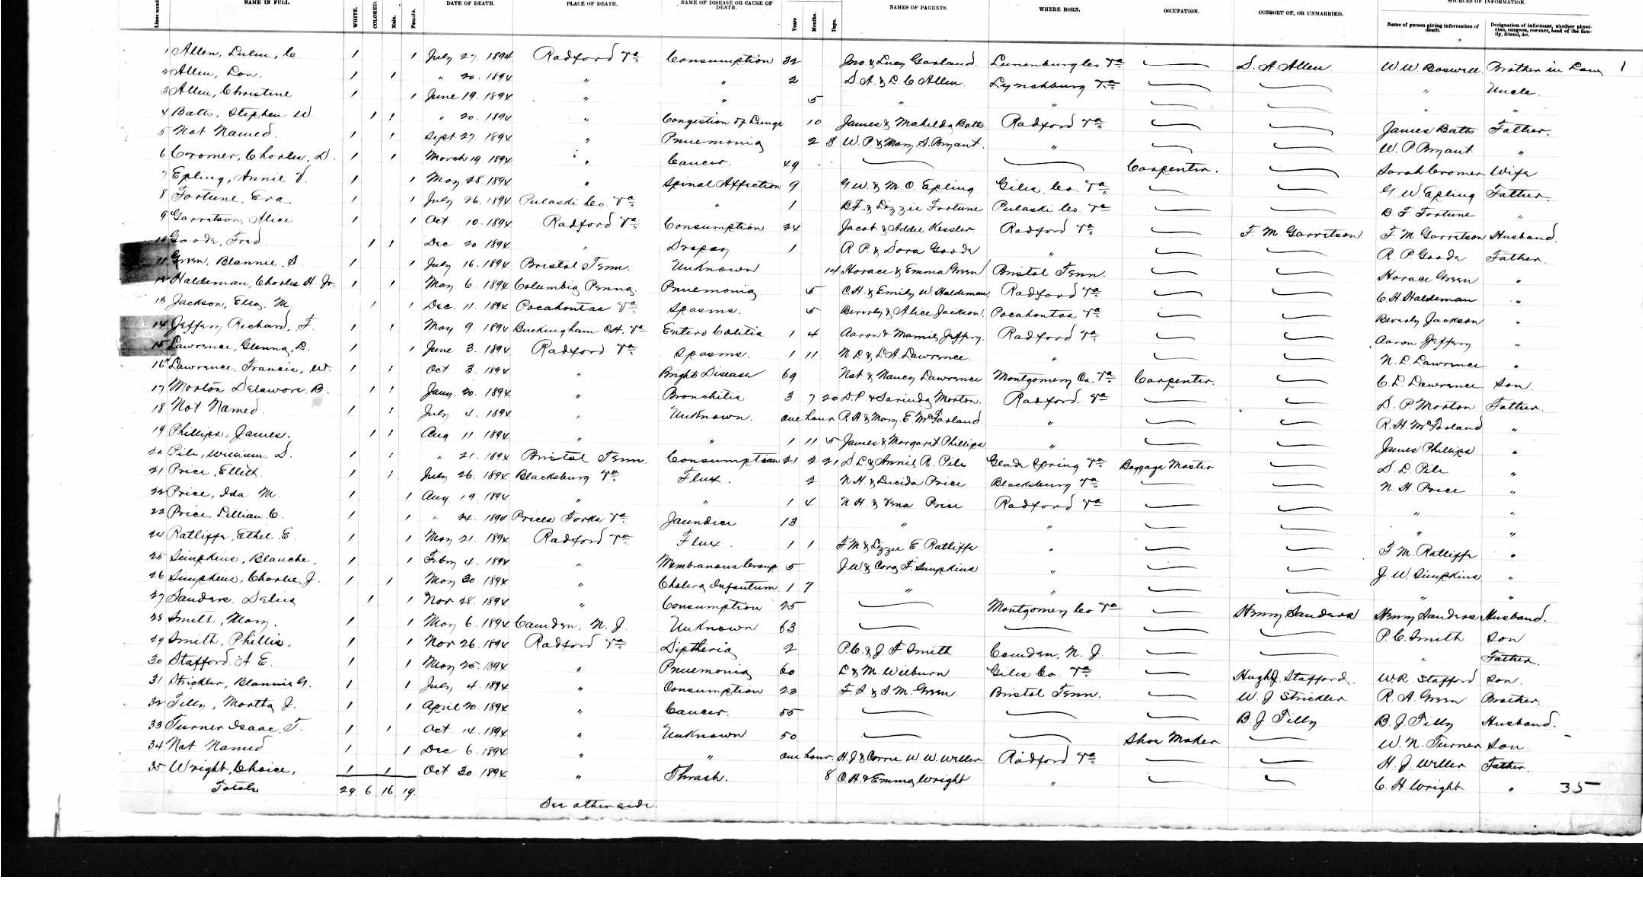 NAME IN FULL. WHITE. COLORED. Male. Female. DATE OF DEATH. PLACE OF DEATH. NAME OF DISEASE OR CAUSE OF DEATH. Years Months Days NAMES OF PARENTS. WHERE BORN. OCCUPATION. CONSORT OF, OR UNMARRIED. SOURCES OF INFORMATION.
Name of person giving information of death. Designation of informant, whether physician, surgeon, coroner, head of the family, friend, &c.
1 Allen, Lulu, C 1 1 July 27. 1894 Radford Va Consumption 32 Jno & Lucy Garland Lunenburg Co Va S. A Allen W W Boswell Brother in Law 1
2 Allen, Don. 1 1 " 20. 1894 " " 2 S A & L C Allen Lynchburg Va " Uncle
3 Allen, Christine 1 1 June 19. 1894 " " 5 " "
4 Batts, Stephen W 1 1 " 20. 1894 " Congestion of Lungs 10 James & Mahilda Batts Radford Va James Batts Father.
5 Not Named. 1 1 Sept 27. 1894 " Pnuemonia 2 8 W. P & Mary S. Bryant. " W. P Bryant "
6 Cromer, Charles, D. 1 1 March 19 1894 " Cancer. 49 Carpenter. Sarah Cromer Wife
7 Epling, Annie V. 1 1 May 28. 1894 " Spinal Affection 9 G. W. & M O Epling Giles Co. Va G W Epling Father.
8 Fortune, Eva. 1 1 July 26. 1894 Pulaski Co. Va " 1 B. F. & Lizzie Fortune Pulaski Co. Va B F Fortune "
9 Garretson, Alice 1 1 Oct 10. 1894 Radford Va Consumption 24 Jacob & Addie Kessler Radford Va F. M Garritson F. M Garritson Husband.
10 Goode, Fred 1 1 Dec 20 1894 " Dropsy 1 R P. & Dora Goode " R. P Goode Father.
11 Green, Blannie, S. 1 1 July 16. 1894 Bristol Tenn. Unknown 14 Horace & Emma Green Bristol Tenn. Horace Green "
12 Haldeman, Charles H Jr. 1 1 May 6. 1894 Columbia Penna. Pnuemonia 5 C. H. & Emily W. Haldeman Radford Va C H Haldeman "
13 Jackson, Ella, M. 1 1 Dec 11. 1894 Pocahontas Va Spasms. 5 Beverly & Alice Jackson Pocahontas Va Beverly Jackson "
14 Jeffery, Richard, F. 1 1 May 9 1894 Buckingham C.H. Va Entero Colitis 1 4 Aaron & Mamie, Jeffery. Radford Va Aaron Jeffery "
15 Lawrence, Glenna, D. 1 1 June 3. 1894 Radford Va Spasms. 1 11 N. L & L A. Lawrence " N. L Lawrence "
16 Lawrence, Francis, W. 1 1 Oct 3. 1894 " Brights Disease 69 Nat & Nancy Lawrence Montgomery Co. Va Carpenter. C. L Lawrence Son
17 Morton Delaware B. 1 1 Jany. 20. 1894 " Bronchitis 3 7 20 D. P & Morton. Radford. Va D. P Morton Father.
18 Not Named 1 1 July 4. 1894 " Unknown. one hour R H & Mary E McFarland. " R. H McFarland "
19 Phillips, James. 1 1 Aug 11 1894 " " 1 11 5 James & Margaret Phillips " James Phillips "
20 Pile, William, D. 1 1 " 21. 1894 Bristol Tenn. Consumption 21 2 21 S L & Annie R. Pile Glade Spring Va Baggage Master S L Pile "
21 Price, Elliott. 1 1 July 26. 1894 Blacksburg Va Flux. 2 N. H & Price Blacksburg Va N H Price "
22 Price, Ida M. 1 1 Aug 19 1894 " " 1 4 N H & Price Radford Va " "
23 Price, Lillian C. 1 1 " 24. 1894 Prices Forks Va Jaundice 13 " " " "
24 Ratliffe, Ethel E. 1 1 May 21. 1894 Radford Va Flux. 1 1 F M & Lizzie E Ratliffe " F M. Ratliffe "
25 Simpkins, Blanche. 1 1 Febry 4. 1894 " Membranous Croup 5 J. W & Cora F. Simpkins " J. W Simpkins "
26 Simpkins, Charlie, J. 1 1 May 30. 1894 " Cholera Infantum 1 7 " " " "
27 Sanders, Delia 1 1 Nov 28. 1894 " Consumption 25 Montgomery Co Va Henry Sanders Henry Sanders Husband.
28 Smith, Mary. 1 1 May 6. 1894 Camden, N. J Unknown 63 P. C. Smith Son
29 Smith, Phillis. 1 1 Nov 26. 1894 Radford Va Diptheria 2 P. C. & J F. Smith Camden, N. J. " Father.
30 Stafford, A E. 1 1 May 25. 1894 " Pnuemonia 60 L & M. Wilburn Giles Co. Va Hugh J Stafford. W R Stafford Son.
31 Strickler, Blannie G. 1 1 July 4. 1894 " Consumption 23 F. S & S M. Green Bristol Tenn. W. J Strickler R. A Green Brother.
32 Tilly, Martha J. 1 1 April 20. 1894 " Cancer. 55 B J Tilly B. J Tilly Husband.
33 Turner Isaac, T. 1 1 Oct 14. 1894 " Unknown 50 Shoe Maker W. N. Turner Son.
34 Not Named 1 1 Dec 6. 1894 " " one hour. H. J & Corrie W W. Willer Radford Va H. J Willer Father.
35 Wright, Choice, 1 1 Oct 30 1894 " Thrash. 8 C H & Emma Wright " C. H Wright " 35
Totals 29 6 16 19.
See other side.